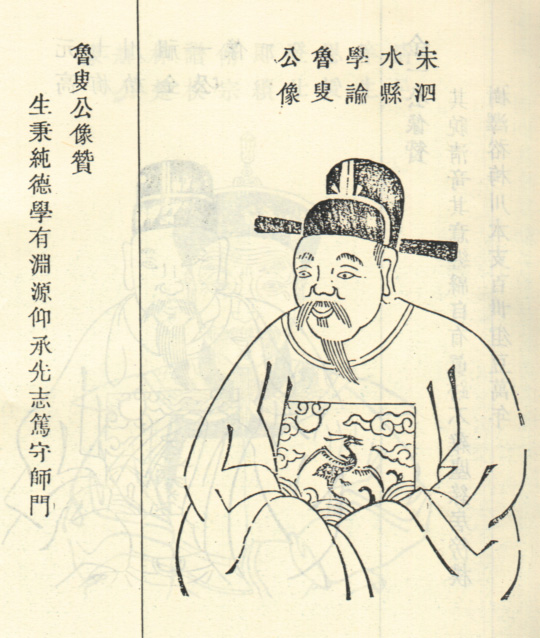 宋泗
水縣
學諭
魯叟
公像
魯叟公像贊
生秉純德學有淵源仰承先志篤守師門